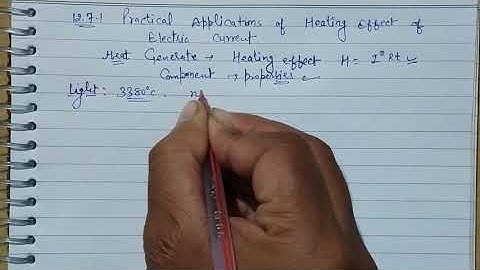 12.7.1 Practical Applications of Heating Effect of
Electric Current
Heat Generate → Heating effect H = I²Rt
Component → properties
Light : 3380°C.